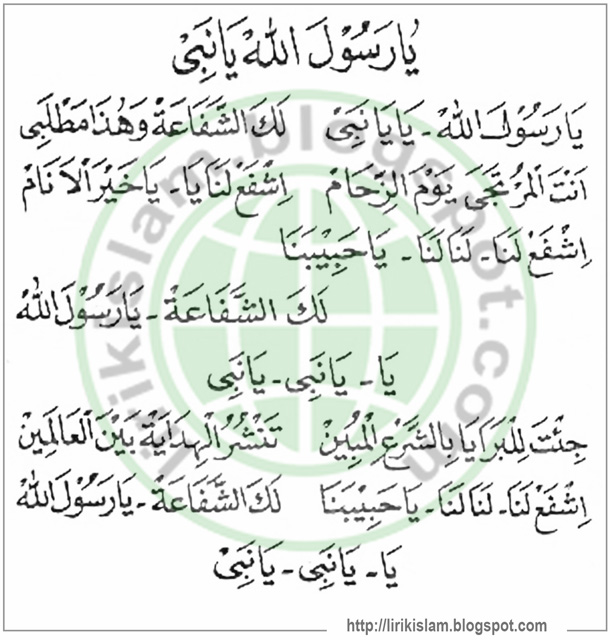 يَا رَسُوْلَ اللهْ يَا نَبِيْ
يَا رَسُوْلَ اللهْ - يَا يَا نَبِيْ لَكَ الشَّفَاعَةْ وَهٰذَا مَطْلَبِيْ
اَنْتَ الْمُرْتَجَى يَوْمَ الزِّحَامْ اِشْفَعْ لَنَا يَا - يَا خَيْرَ الْاَنَامْ
اِشْفَعْ لَنَا - لَنَا لَنَا - يَا حَبِيْبَنَا
لَكَ الشَّفَاعَةْ - يَا رَسُوْلَ اللهْ
يَا - يَا نَبِيْ - يَا نَبِيْ
جِئْتَ لِلْبَرَايَا بِالشَّرْعِ الْمُبِيْنْ تَنْشُرُ الْهِدَايَةْ بَيْنَ الْعَالَمِيْنْ
اِشْفَعْ لَنَا - لَنَا لَنَا - يَا حَبِيْبَنَا لَكَ الشَّفَاعَةْ - يَا رَسُوْلَ اللهْ
يَا - يَا نَبِيْ - يَا نَبِيْ
lirikislam.blogspot.com
http://lirikislam.blogspot.com